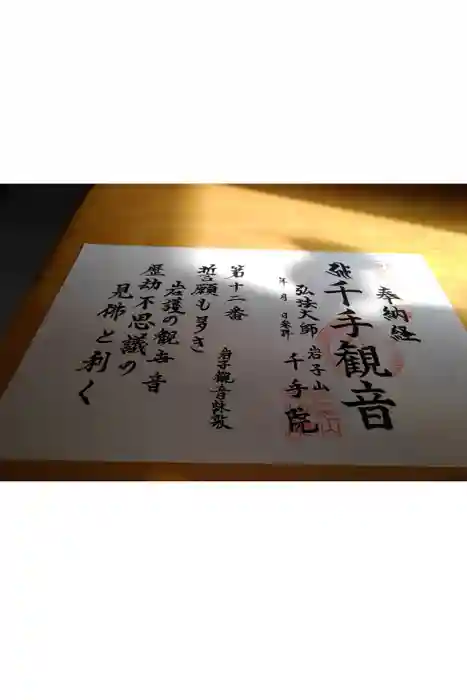 奉納経
千手観音
弘法大師 岩子山
千手院
年 月 日参拝
第十二番
岩子観音詠歌
誓願も多き
岩護の観世音
歴劫不思議の
見佛と利く